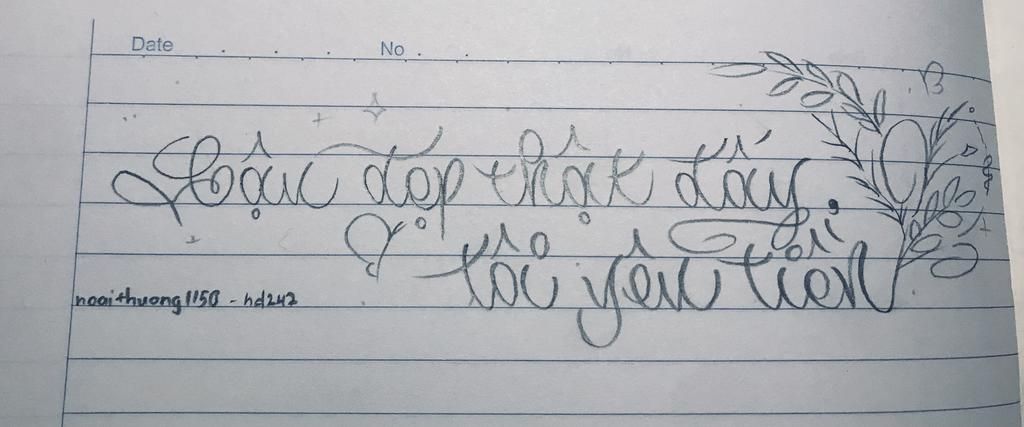 Date No
Cậu đẹp thật đấy,
tôi yêu tiền
noaithuong1150 - hd247